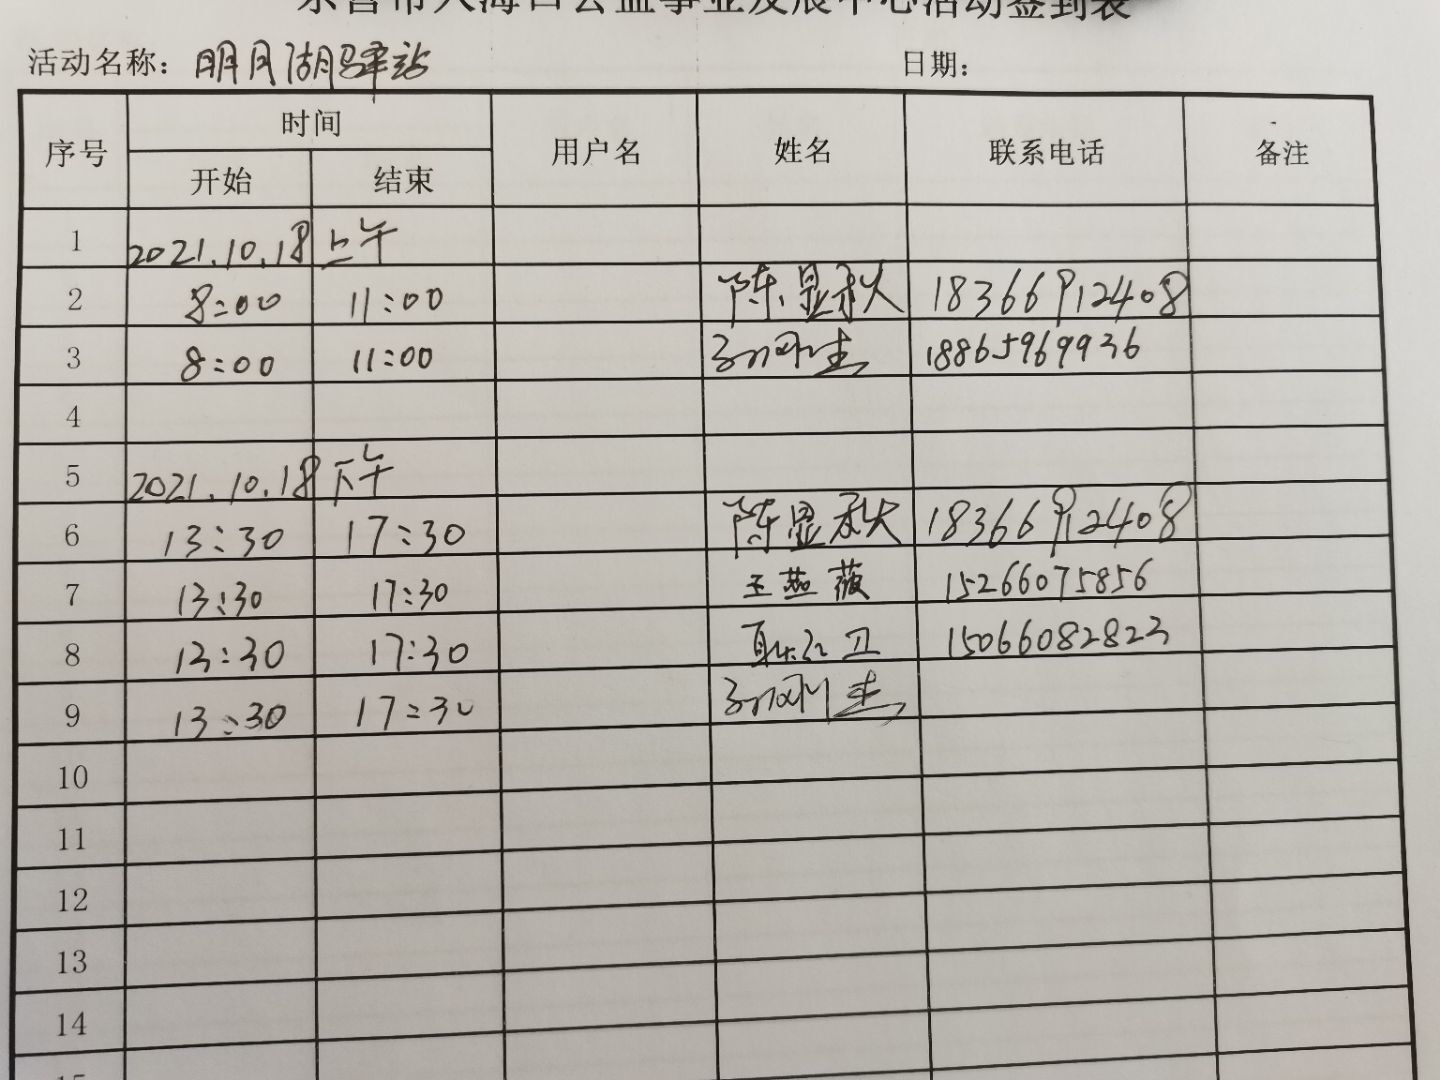 东营市入海口公益事业发展中心活动签到表
活动名称：明月湖驿站 日期：
序号 时间 用户名 姓名 联系电话 备注
开始 结束
1 2021.10.18 上午
2 8:00 11:00 陈显秋 18366912408
3 8:00 11:00 18865969936
4
5 2021.10.18 下午
6 13:30 17:30 陈显秋 18366912408
7 13:30 17:30 王燕薇 15266075856
8 13:30 17:30 耿红卫 15066082823
9 13:30 17:30
10
11
12
13
14
15